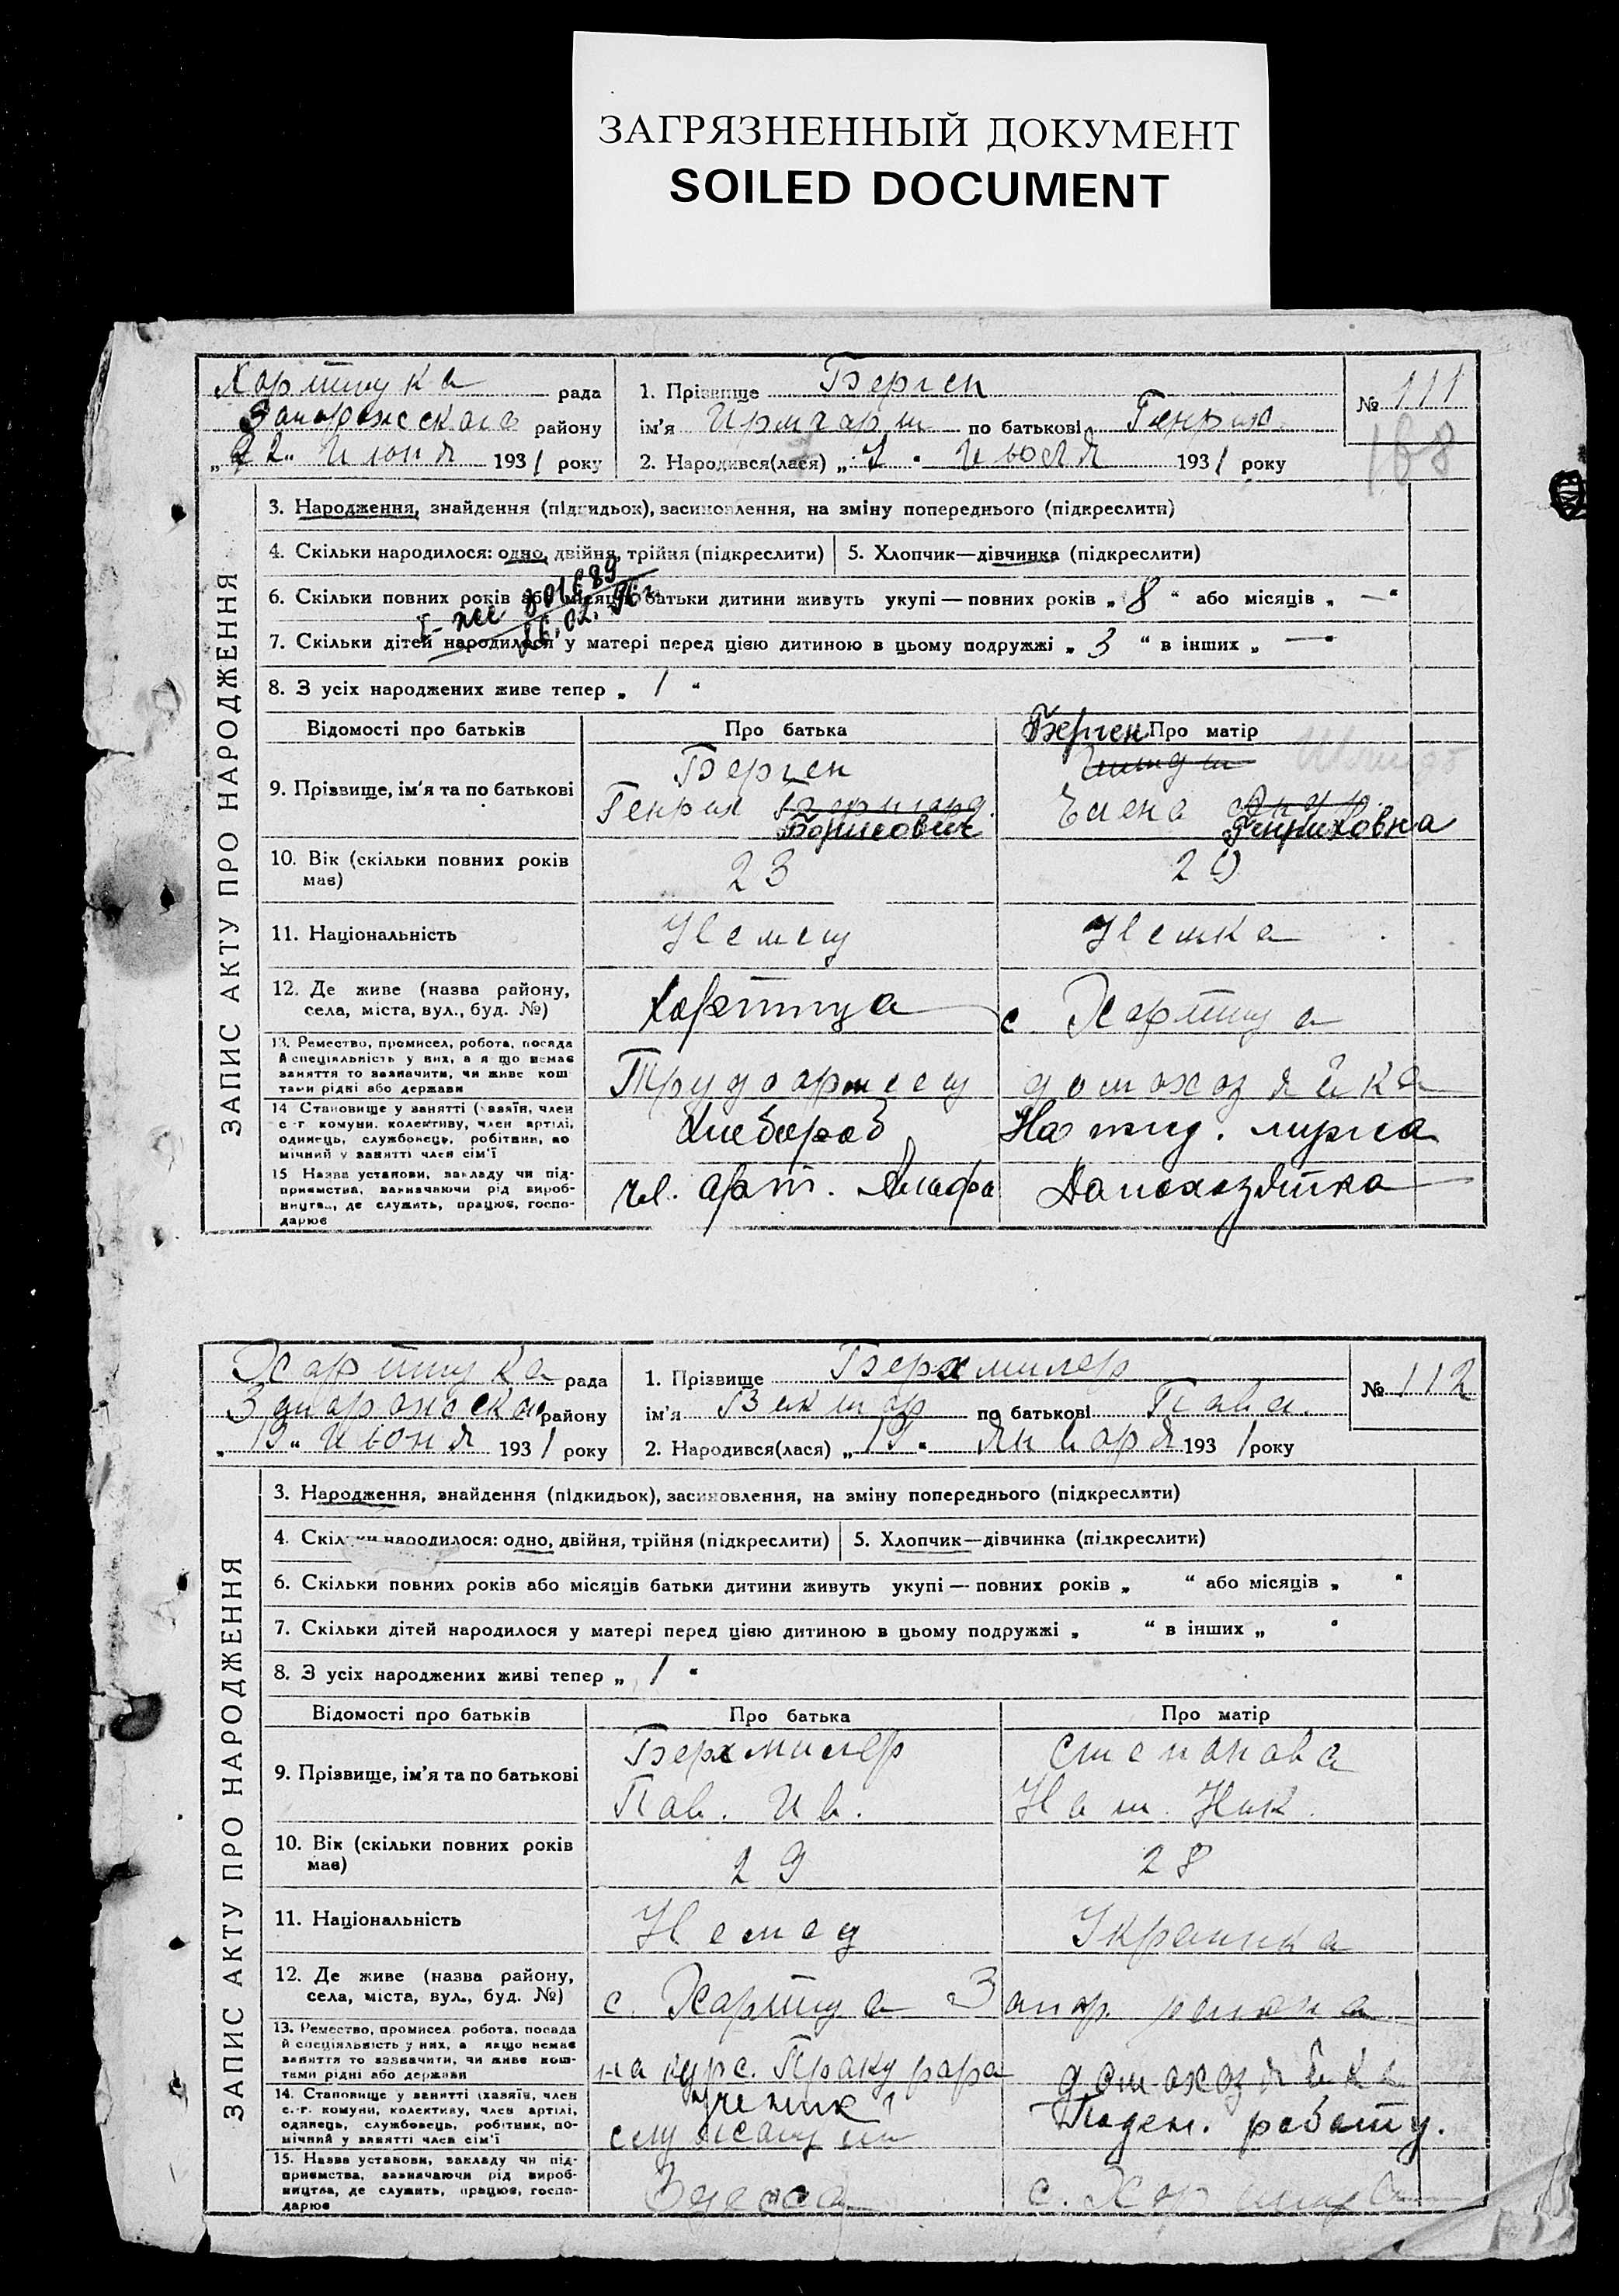 ЗАГРЯЗНЕННЫЙ ДОКУМЕНТ
SOILED DOCUMENT
рада
Запорожского району
"22" Июня 1931 року
1. Прізвище Берген
ім'я Ирмгарт по батькові Генрих.
2. Народився(лася) „7" 1931 року
№ 111
168
ЗАПИС АКТУ ПРО НАРОДЖЕННЯ
3. Народження, знайдення (підкидьок), засиновлення, на зміну попереднього (підкреслити)
4. Скільки народилося: одно, двійня, трійня (підкреслити)
5. Хлопчик—дівчинка (підкреслити)
6. Скільки повних років або місяців батьки дитини живуть укупі — повних років „8" або місяців „—"
7. Скільки дітей народилося у матері перед цією дитиною в цьому подружжі „3" в інших „—"
8. З усіх народжених живе тепер „1"
Відомості про батьків
Про батька
Про матір
9. Прізвище, ім'я та по батькові
Берген
Генрих
Борисович
Берген
Елена
Генриховна
10. Вік (скільки повних років має)
23
29
11. Національність
Немец
Немка
12. Де живе (назва району, села, міста, вул., буд. №)
Хортица
с. Хортица
13. Ремество, промисел, робота, посада й спеціяльність у них, а якщо немає заняття то зазначити, чи живе коштами рідні або держави
домохозяйка
14. Становище у занятті (хазяїн, член с.-г. комуни, колективу, член артілі, одинець, службовець, робітник, помічний у занятті член сім'ї
Хлебороб
На ижд. мужа
15. Назва установи, закладу чи підприємства, зазначаючи рід виробництва, де служить, працює, господарює
чл. арт.
Домохозяйка
рада
району
"19" Июня 1931 року
1. Прізвище Бергмилер
ім'я Виктор по батькові Павл.
2. Народився(лася) „19" Января 1931 року
№ 112
ЗАПИС АКТУ ПРО НАРОДЖЕННЯ
3. Народження, знайдення (підкидьок), засиновлення, на зміну попереднього (підкреслити)
4. Скільки народилося: одно, двійня, трійня (підкреслити)
5. Хлопчик—дівчинка (підкреслити)
6. Скільки повних років або місяців батьки дитини живуть укупі — повних років „ " або місяців „ "
7. Скільки дітей народилося у матері перед цією дитиною в цьому подружжі „ " в інших „ "
8. З усіх народжених живі тепер „1"
Відомості про батьків
Про батька
Про матір
9. Прізвище, ім'я та по батькові
Бергмилер
Пав. Ив.
Степанова
Нат. Ник.
10. Вік (скільки повних років має)
29
28
11. Національність
Немец
Украинка
12. Де живе (назва району, села, міста, вул., буд. №)
с. Хортица Запор. района
13. Ремество, промисел, робота, посада й спеціяльність у них, а якщо немає заняття то зазначити, чи живе коштами рідні або держави
на курс.
домохозяйка
14. Становище у занятті (хазяїн, член с.-г. комуни, колективу, член артілі, одинець, службовець, робітник, помічний у занятті член сім'ї
Ученик
служащий
Поден. работу.
15. Назва установи, закладу чи підприємства, зазначаючи рід виробництва, де служить, працює, господарює
Одесса
с. Хортица